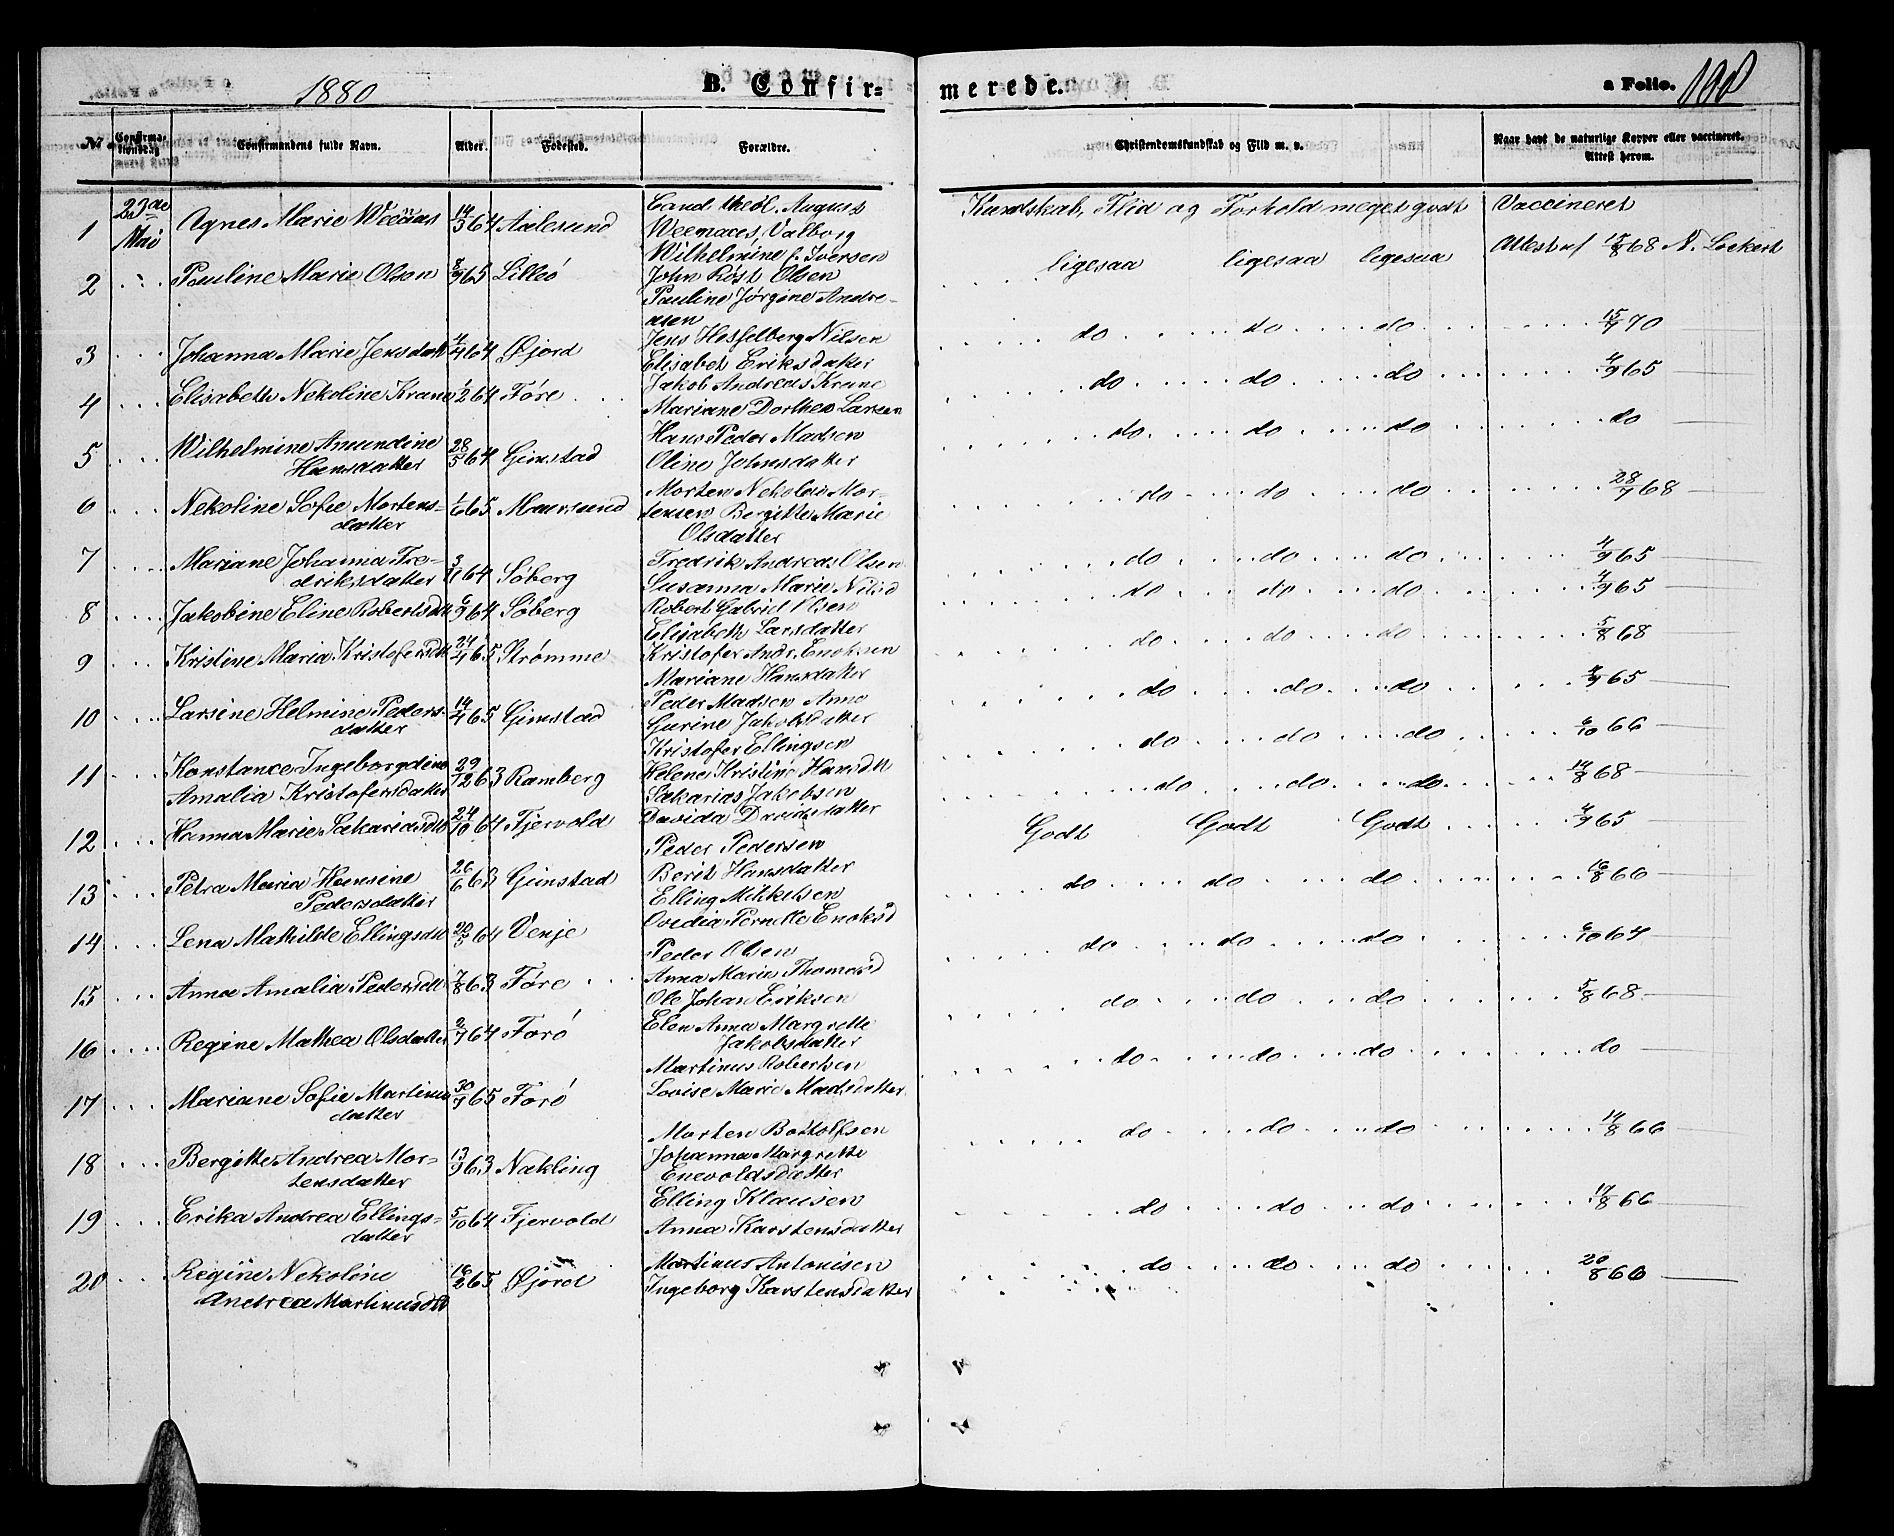 1880 B. Confir= merede. a Folio. 198
No Confirma-tionsdag Confirmandens fulde Navn. Alder. Fødested. Forældre. Christendomskundskab og Flid m. v. Naar havt de naturlige Kopper eller vaccineret. Attest herom.
1 23de Mai Agnes Marie 14/3 64 Aalesund Cand theol August Kundskab, Flid og Forhold meget godt Vaccineret
Valborg
Wilhelmine f. Iversen Attest af 17/8 68 N. Lockert
2 Pauline Marie Olsen 8/9 65 Lilleö John Röst Olsen ligesaa ligesaa ligesaa
Pauline Jørgine Andre-
asen
3 Johanna Marie Jensdatt 4/4 64 Øjord Jens Hesselberg Nilsen do do do 15/9 70
Elisabet Eriksdatter
4 Elisabeth Nekoline Krane 1/2 64 Före Jakob Andreas Krane do do do 4/9 65
Mariane Dorthea Larsen
5 Wilhelmine Amundine 28/5 64 Gimstad Hans Peder Madsen do do do do
Hansdatter Oline Johnsdatter
6 Nekoline Sofie Mortens- 1/6 65 Maursund Morten Nekolai Mor- do do do 28/7 68
datter tensen Bergitte Marie
Olsdatter
7 Mariane Johanna Fre- 3/11 64 Söberg Fredrik Andreas Olsen do do do 4/9 65
driksdatter Susanna Marie Nilsd
8 Jakobine Eline Robertsdtt 6/9 64 Söberg Robert Gabriel Olsen do do do 4/9 65
Elisabeth Larsdatter
9 Kristine Maria Kristofersdtt 24/4 65 Strømme Kristofer Andr. Enoksen do do do 5/8 68
Mariane Hansdatter
10 Larsine Helmine Peders- 14/4 65 Gimstad Peder Madsen Anne do do do 4/9 65
datter Gurine Jakobsdatter
11 Konstance Ingeborgdine 29/12 63 Ramberg Kristofer Ellingsen do do do 6/10 66
Amalia Kristofersdatter Helene Kristine Hansdtt
12 Hanna Marie Sakariasdtt 24/10 64 Fjervold Sakarias Jakobsen do do do 14/8 68
Davida Davidsdatter
13 Petra Maria Hansine 26/6 63 Gimstad Peder Pedersen Godt Godt Godt 4/9 65
Pedersdatter Berit Hansdatter
14 Lena Mathilde Ellingsdtt 20/5 64 Venje Elling Mikkelsen do do do 16/8 66
Ovedia Pernelle Enoksd
15 Anna Amalia Pedersdtt 7/8 63 Före Peder Olsen do do do 6/10 64
Anna Maria Thomasd
16 Regine Mathea Olsdatter 2/7 64 Forö Ole Johan Eriksen do do do 5/8 68
Elen Anna Margrette
Jakobsdatter
17 Mariane Sofie Martinus 30/9 65 Forö Martinus Robertsen do do do do
datter Lovise Marie Madsdatter
18 Bergitte Andrea Mor- 13/9 63 Nakling Morten Bottolfsen do do do 14/8 66
tensdatter Johanna Margrette
Enevoldsdatter
19 Erika Andrea Ellings- 5/10 64 Fjervold Elling Klausen do do do 17/8 66
datter Anna Karstensdatter
20 Regine Nekoline 16/8 65 Øjord Martinus Antonisen do do do 20/8 66
Andrea Martinusdtt Ingeborg Karstensdatter